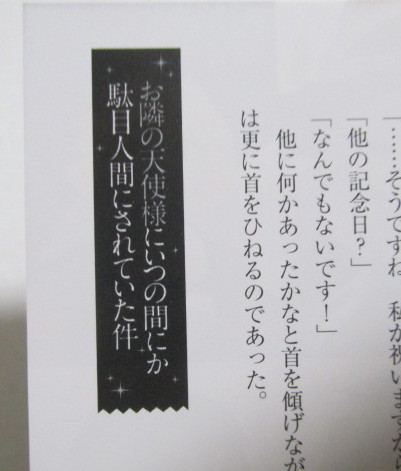 「……そうですね、私が祝いますから
「他の記念日？」
「なんでもないです！」
他に何かあったかなと首を傾げなが
は更に首をひねるのであった。
お隣の天使様にいつの間にか
駄目人間にされていた件